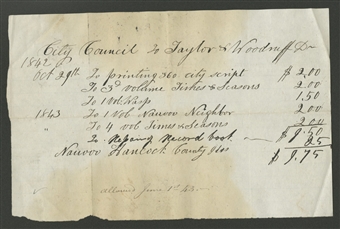 City Council To Taylor & Woodruff Dr
1842
Oct 29th To printing 360 city script $ 2.00
To 3d volume Times & Seasons 2.00
To 1 Vol Wasp 1.50
1843 To 1 Vol Nauvoo Neighbor 2.00
" To 4 vol Times & Seasons 2.00
To Record book $ 9.50
25
Nauvoo Hancock County Ills $ 9.75
allowed June 1st 43